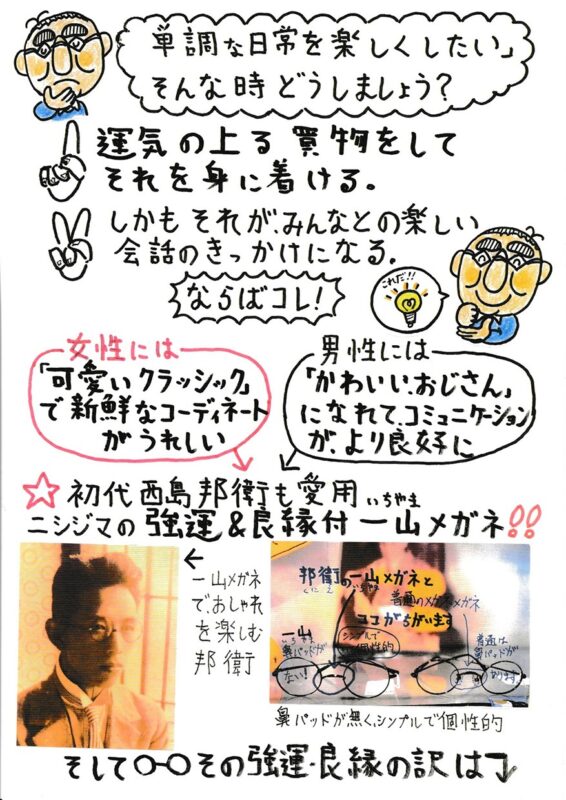 「単調な日常を楽しくしたい」
そんな時どうしましょう?
運気の上る買物をして
それを身に着ける。
しかもそれが、みんなとの楽しい
会話のきっかけになる。
ならばコレ!
これだ!!
女性には
「可愛いクラッシック」
で新鮮なコーディネート
がうれしい
男性には
「かわいいおじさん」
になれて、コミュニケーション
が、より良好に
☆初代西島邦衛も愛用
いちやま
ニシジマの強運&良縁付一山メガネ!!
←
一山メガネ
で、おしゃれ
を楽しむ
邦衛
邦衛の一山メガネと
くにえ
いちやま
普通のメガネ
ココがちがいます
一山
いちやま
シンプルで
個性的
鼻パッドが
ない!
普通は
鼻パッドが
あります
鼻パッドが無く、シンプルで個性的
そしてその強運・良縁の訳は